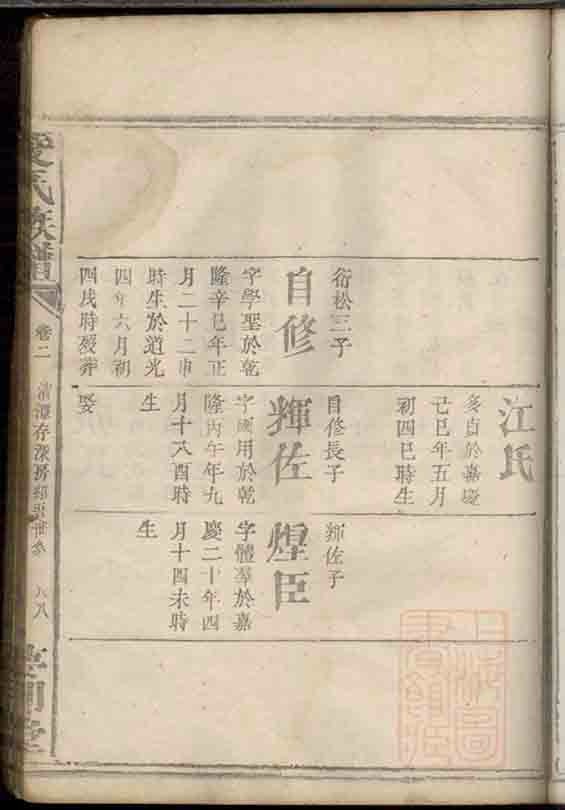 江氏
於嘉慶
己巳年五月
初四巳時生
衍松三子
自修
字學聖於乾
隆辛巳年正
月二十二申
時生於道光
四年六月初
四戌時歿葬
自修長子
輝佐
字國用於乾
隆丙午年九
月十八酉時
生
娶
輝佐子
煌臣
字體羣於嘉
慶二十年四
月十四未時
生
氏族譜
卷二
八八
堂